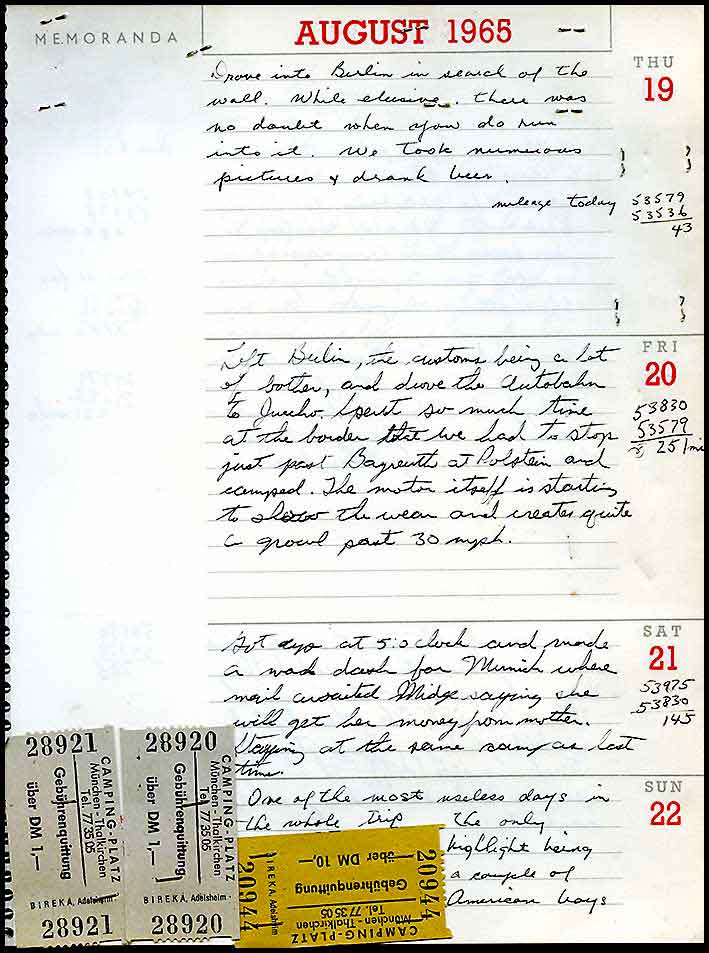 MEMORANDA
AUGUST 1965
THU
19
Drove into Berlin in search of the
wall. While elusive, there was
no doubt when you do run
into it. We took numerous
pictures & drank beer.
mileage today
53579
53536
43
FRI
20
Left Berlin, the customs being a lot
of bother, and drove the Autobahn
to spent so much time
at the border that we had to stop
just past Bayreuth at and
camped. The motor itself is starting
to show the wear and creates quite
a growl past 30 mph.
53830
53579
251mi
SAT
21
Got up at 5:0clock and made
a mad dash for Munich where
mail awaited Midge saying she
will get her money from mother.
Staying at the same camp as last
time.
53975
53830
145
SUN
22
One of the most useless days in
the whole trip the only
highlight being
a couple of
American boys
28921
CAMPING-PLATZ
München-Thalkirchen
Tel. 77 35 05
Gebührenquittung
über DM 1,—
BIREKA, Adelsheim
28921
28920
CAMPING-PLATZ
München-Thalkirchen
Tel. 77 35 05
Gebührenquittung
über DM 1,—
BIREKA, Adelsheim
28920
20944
CAMPING-PLATZ
München-Thalkirchen
Tel. 77 35 05
Gebührenquittung
über DM 10,—
BIREKA, Adelsheim
20944